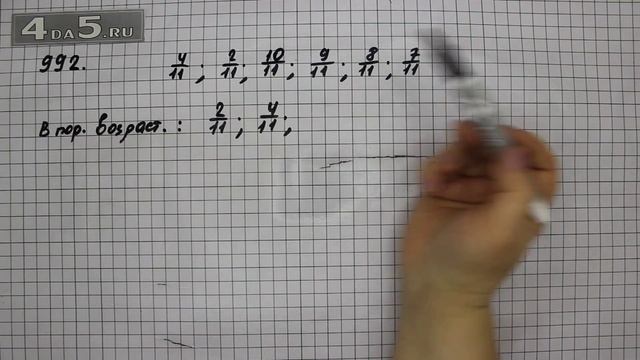 4DA5.RU
992. 4/11 ; 2/11 ; 10/11 ; 9/11 ; 8/11 ; 7/11
В пор. возраст. : 2/11 ; 4/11 ;